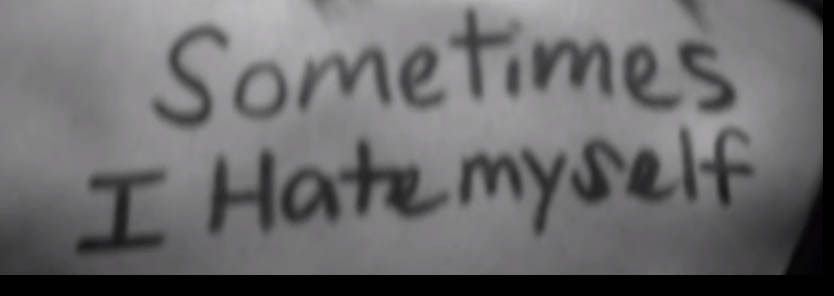 Sometimes
I Hate myself